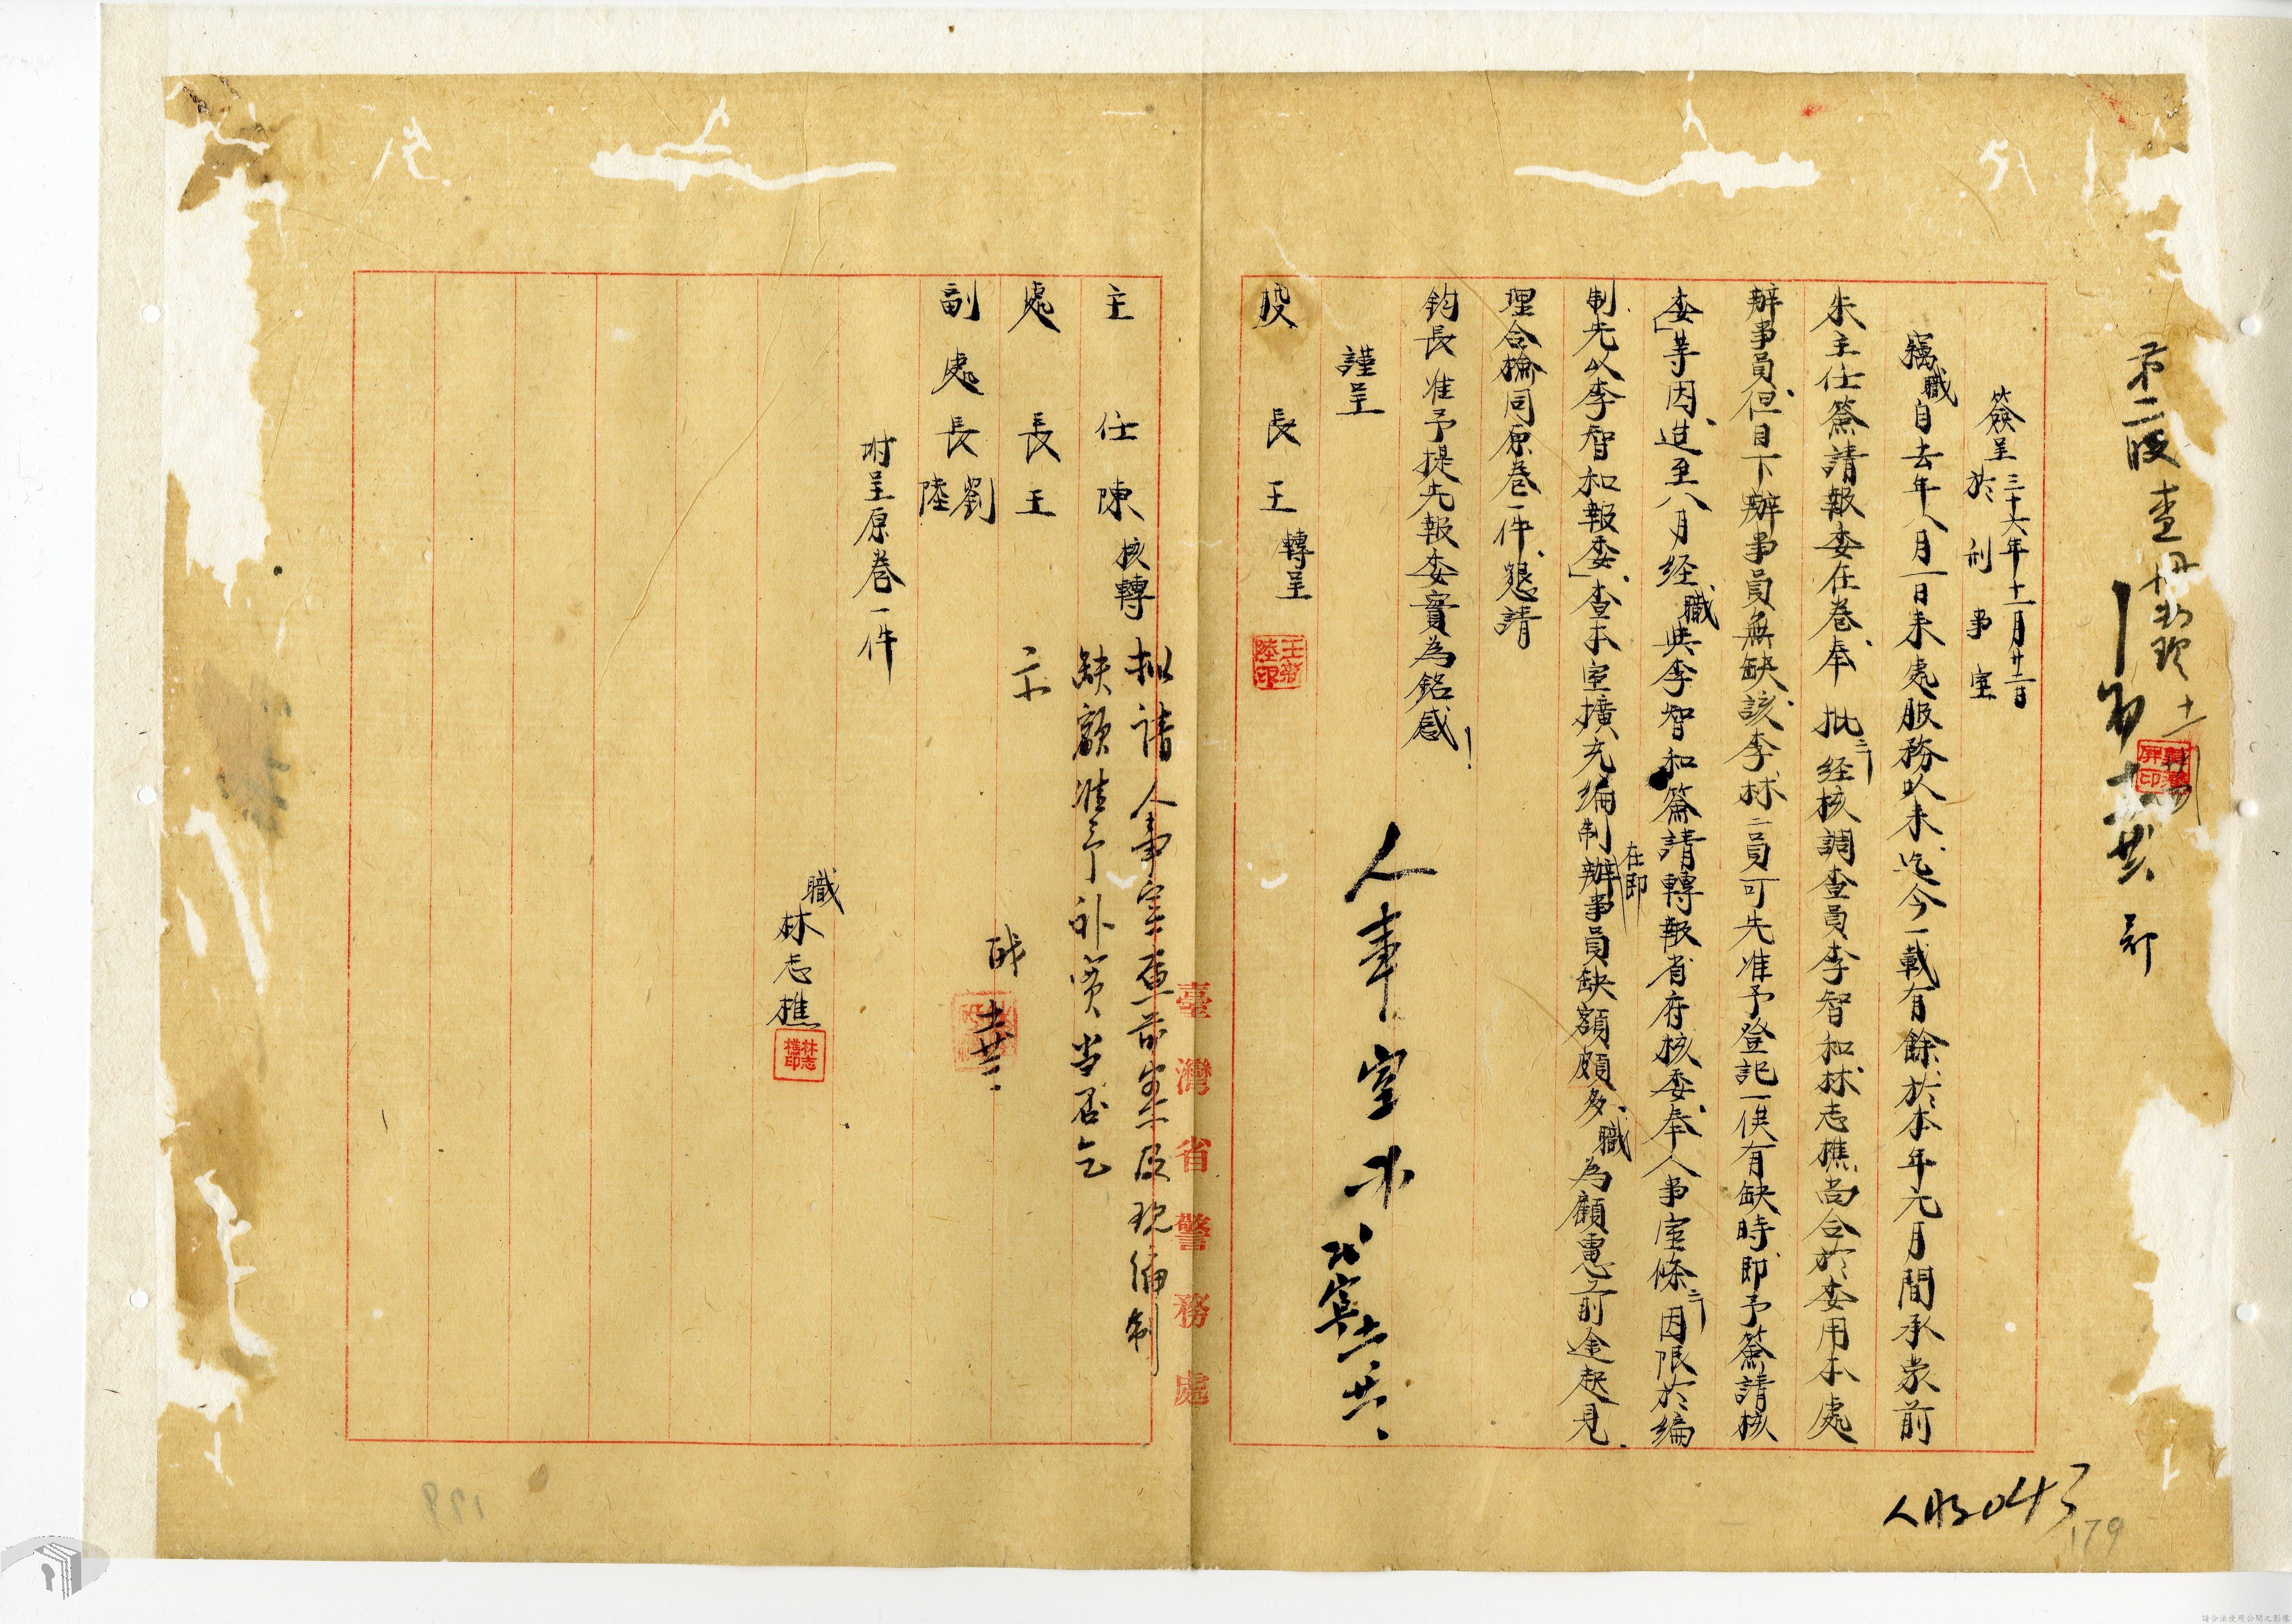 第二股查
簽呈 三十六年十一月廿二日
於刑事室
竊職自去年八月一日來處服務以來、迄今一載有餘、於本年元月間承蒙前
朱主任簽請報委在卷、奉 批「經核調查員李智和、林志樵、尚合於委用本處
辦事員、但目下辦事員無缺、該李林二員可先准予登記一俟有缺時、即予簽請核
委」等因、迨至八月經職與李智和簽請轉報省府核委、奉人事室條「因限於編
制先以李智和報委」、查本室擴充編制在即辦事員缺額頗多、職為顧慮前途起見、
理合檢同原卷一件、懇請
鈞長准予提先報委實為銘感!
謹呈
股長王 轉呈
王
陸印
人事室
主任陳 核轉
處長王
副處長劉
陸
附呈原卷一件
職林志樵
林志
樵印
擬請人事室查案及現編制
缺額准予补實當否乞
示
臺灣省警務處
043
179